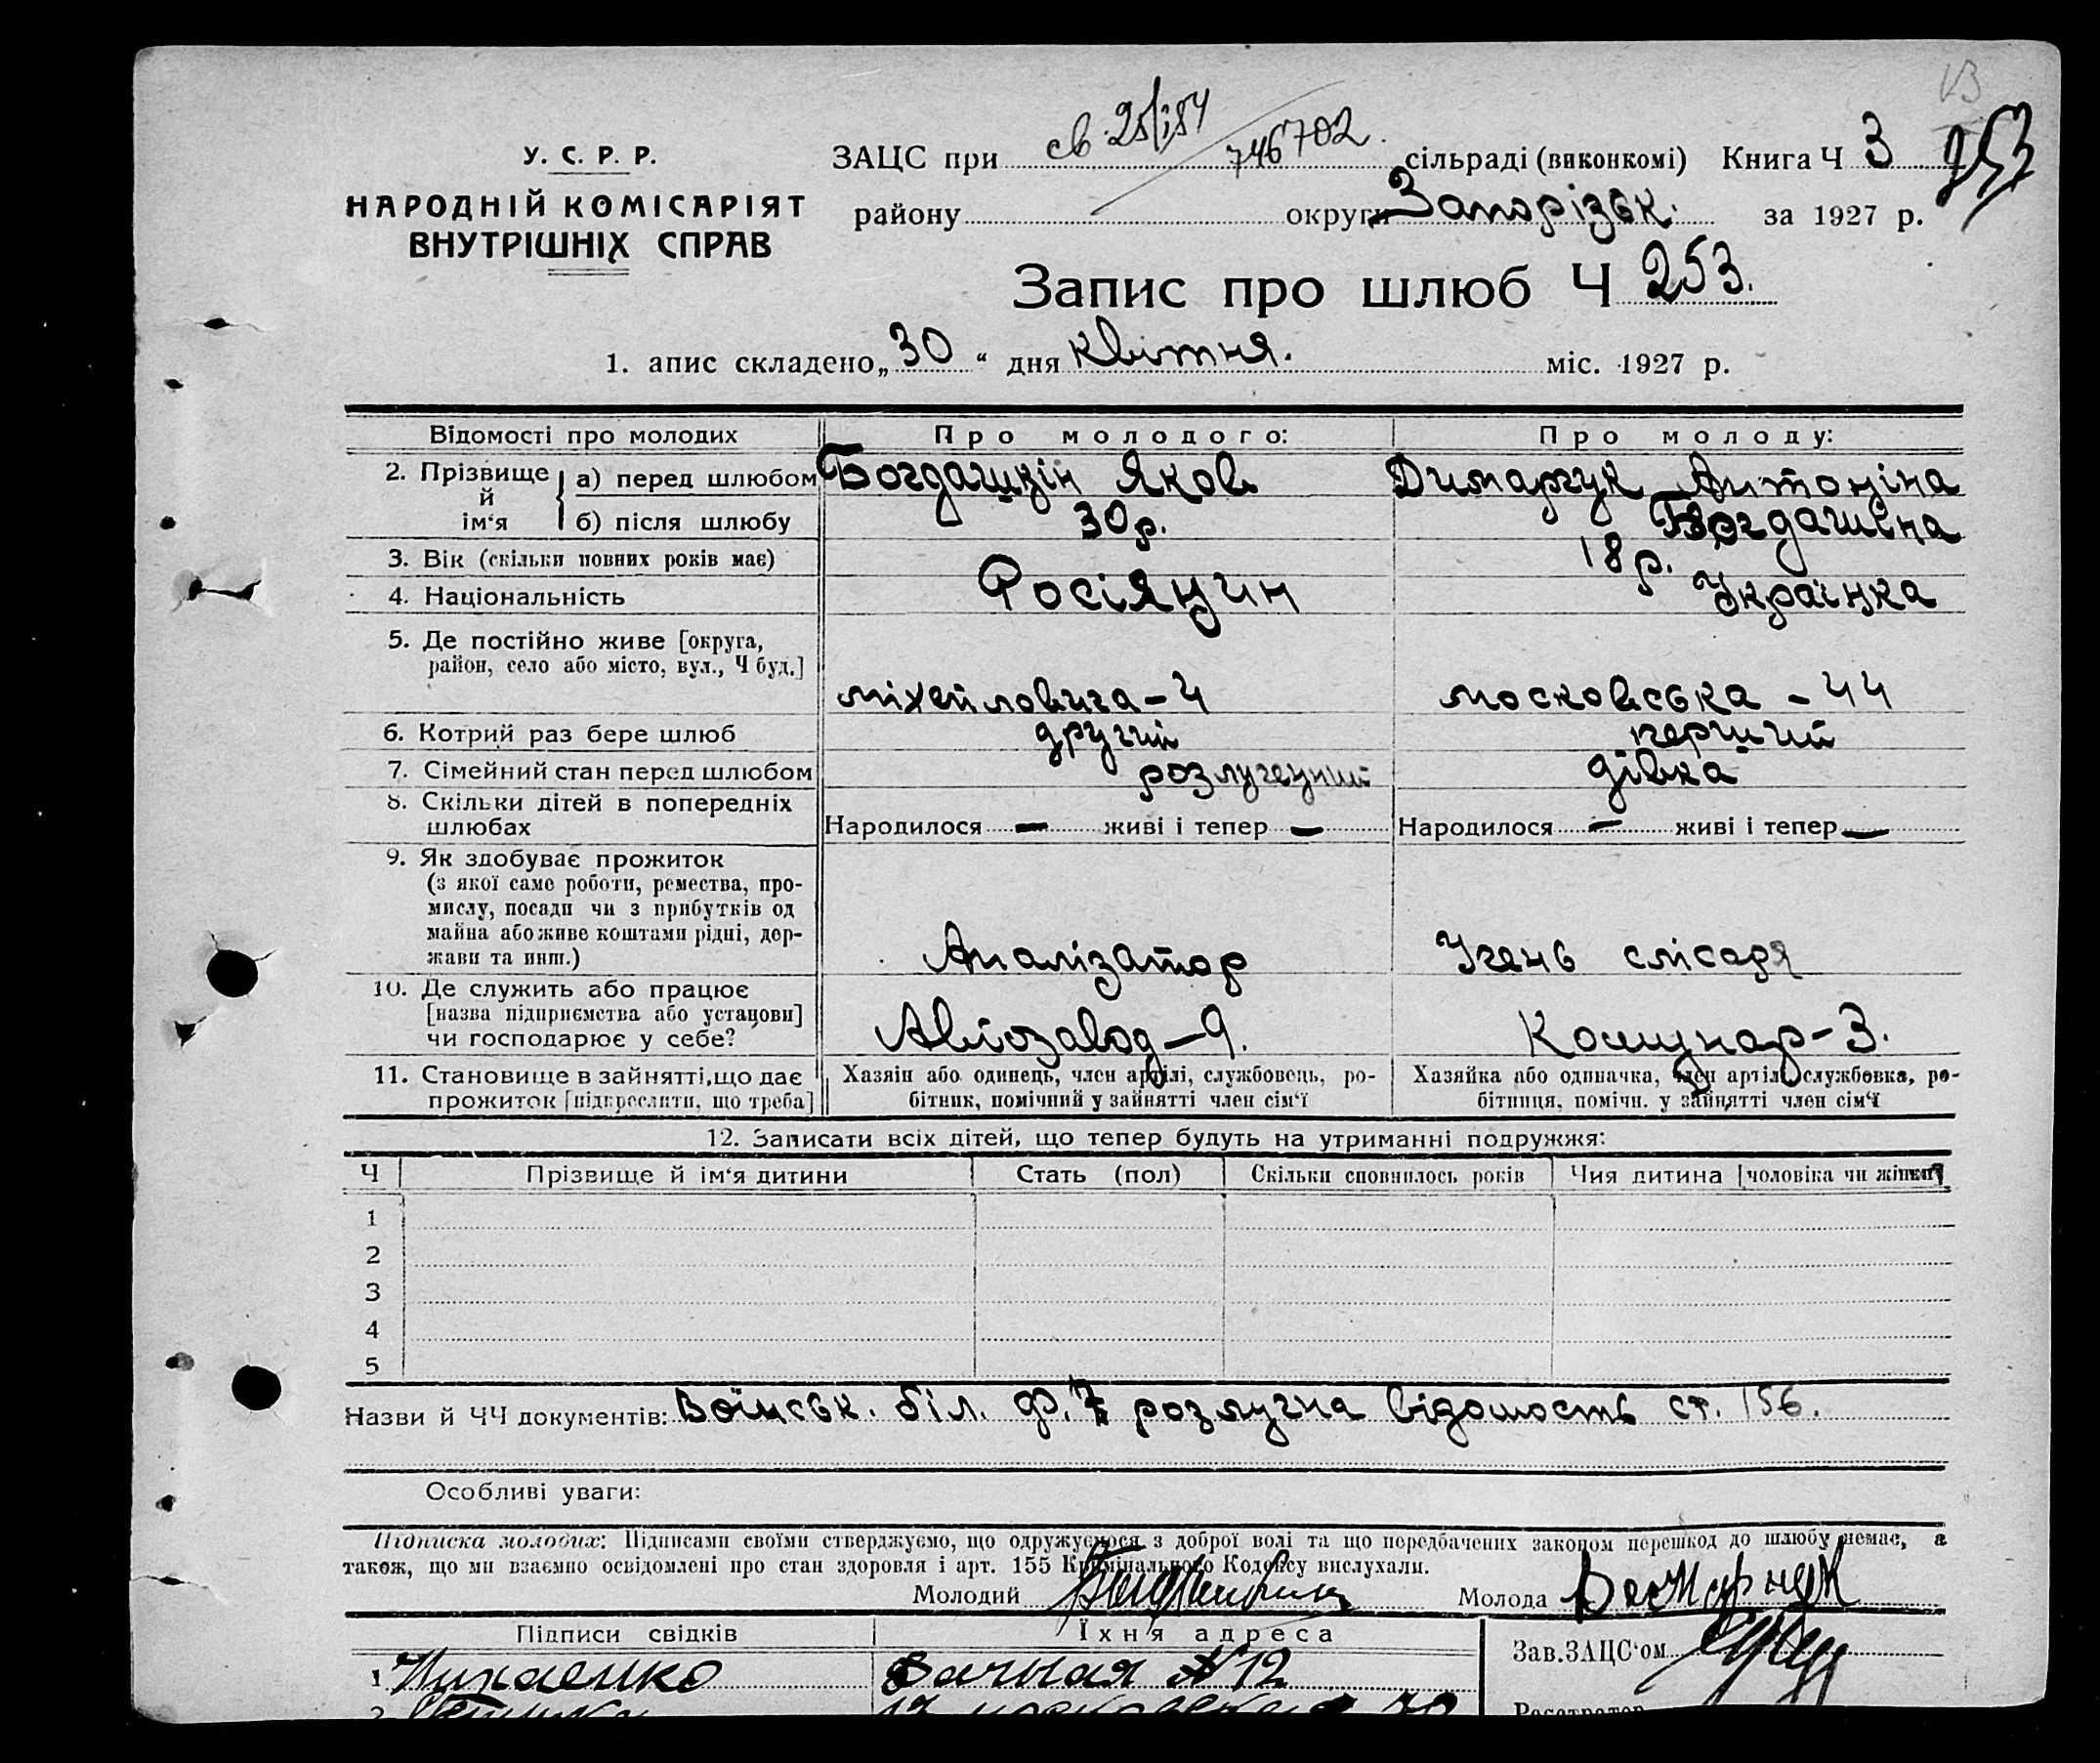 13
У. С. Р. Р.
НАРОДНІЙ КОМІСАРІЯТ
ВНУТРІШНІХ СПРАВ
св. 25/154
746702.
ЗАЦС при сільраді (виконкомі) Книга Ч 3 253
району округи Запорізьк. за 1927 р.
Запис про шлюб Ч 253.
1. апис складено „30“ дня квітня. міс. 1927 р.
Відомості про молодих Про молодого: Про молоду:
2. Прізвище й ім‘я а) перед шлюбом Богдашкін Яков Димарчук Антоніна
б) після шлюбу
3. Вік (скільки повних років має) 30р. 18р.
4. Національність Росіянин Українка
5. Де постійно живе [округа,
район, село або місто, вул., Ч буд.] міхейловича-4 московська - 44
6. Котрий раз бере шлюб другий перший
7. Сімейний стан перед шлюбом розлучений дівка
8. Скільки дітей в попередніх
шлюбах Народилося — живі і тепер — Народилося — живі і тепер —
9. Як здобуває прожиток
(з якої саме роботи, ремества, про-
мислу, посади чи з прибутків од
майна або живе коштами рідні, дер-
жави та инш.) Аналізатор Учень слісаря
10. Де служить або працює
[назва підприємства або установи]
чи господарює у себе? Авіозавод-9. Комунар-3.
11. Становище в зайнятті, що дає
прожиток [підкреслити, що треба]
Хазяін або одинець, член артілі, службовець, ро-
бітник, помічний у зайнятті член сім‘ї
Хазяйка або одиначка, член артілі, службовка, ро-
бітниця, помічн. у зайнятті член сім‘ї
12. Записати всіх дітей, що тепер будуть на утриманні подружжя:
Ч Прізвище й ім‘я дитини Стать (пол) Скільки сповнилось років Чия дитина [чоловіка чи жінки]
1
2
3
4
5
Назви й ЧЧ документів: Воїнськ. біл. ф. 7 розлучна відомость ст. 156.
Особливі уваги:
Підписка молодих: Підписами своїми стверджуємо, що одружуємося з доброї волі та що передбачених законом перешкод до шлюбу немає, а
також, що ми взаємно освідомлені про стан здоровля і арт. 155 Кримінального Кодексу вислухали.
Молодий Молода
Підписи свідків Їхня адреса Зав. ЗАЦС‘ом
1 Дачная №12
2
Реєстратор